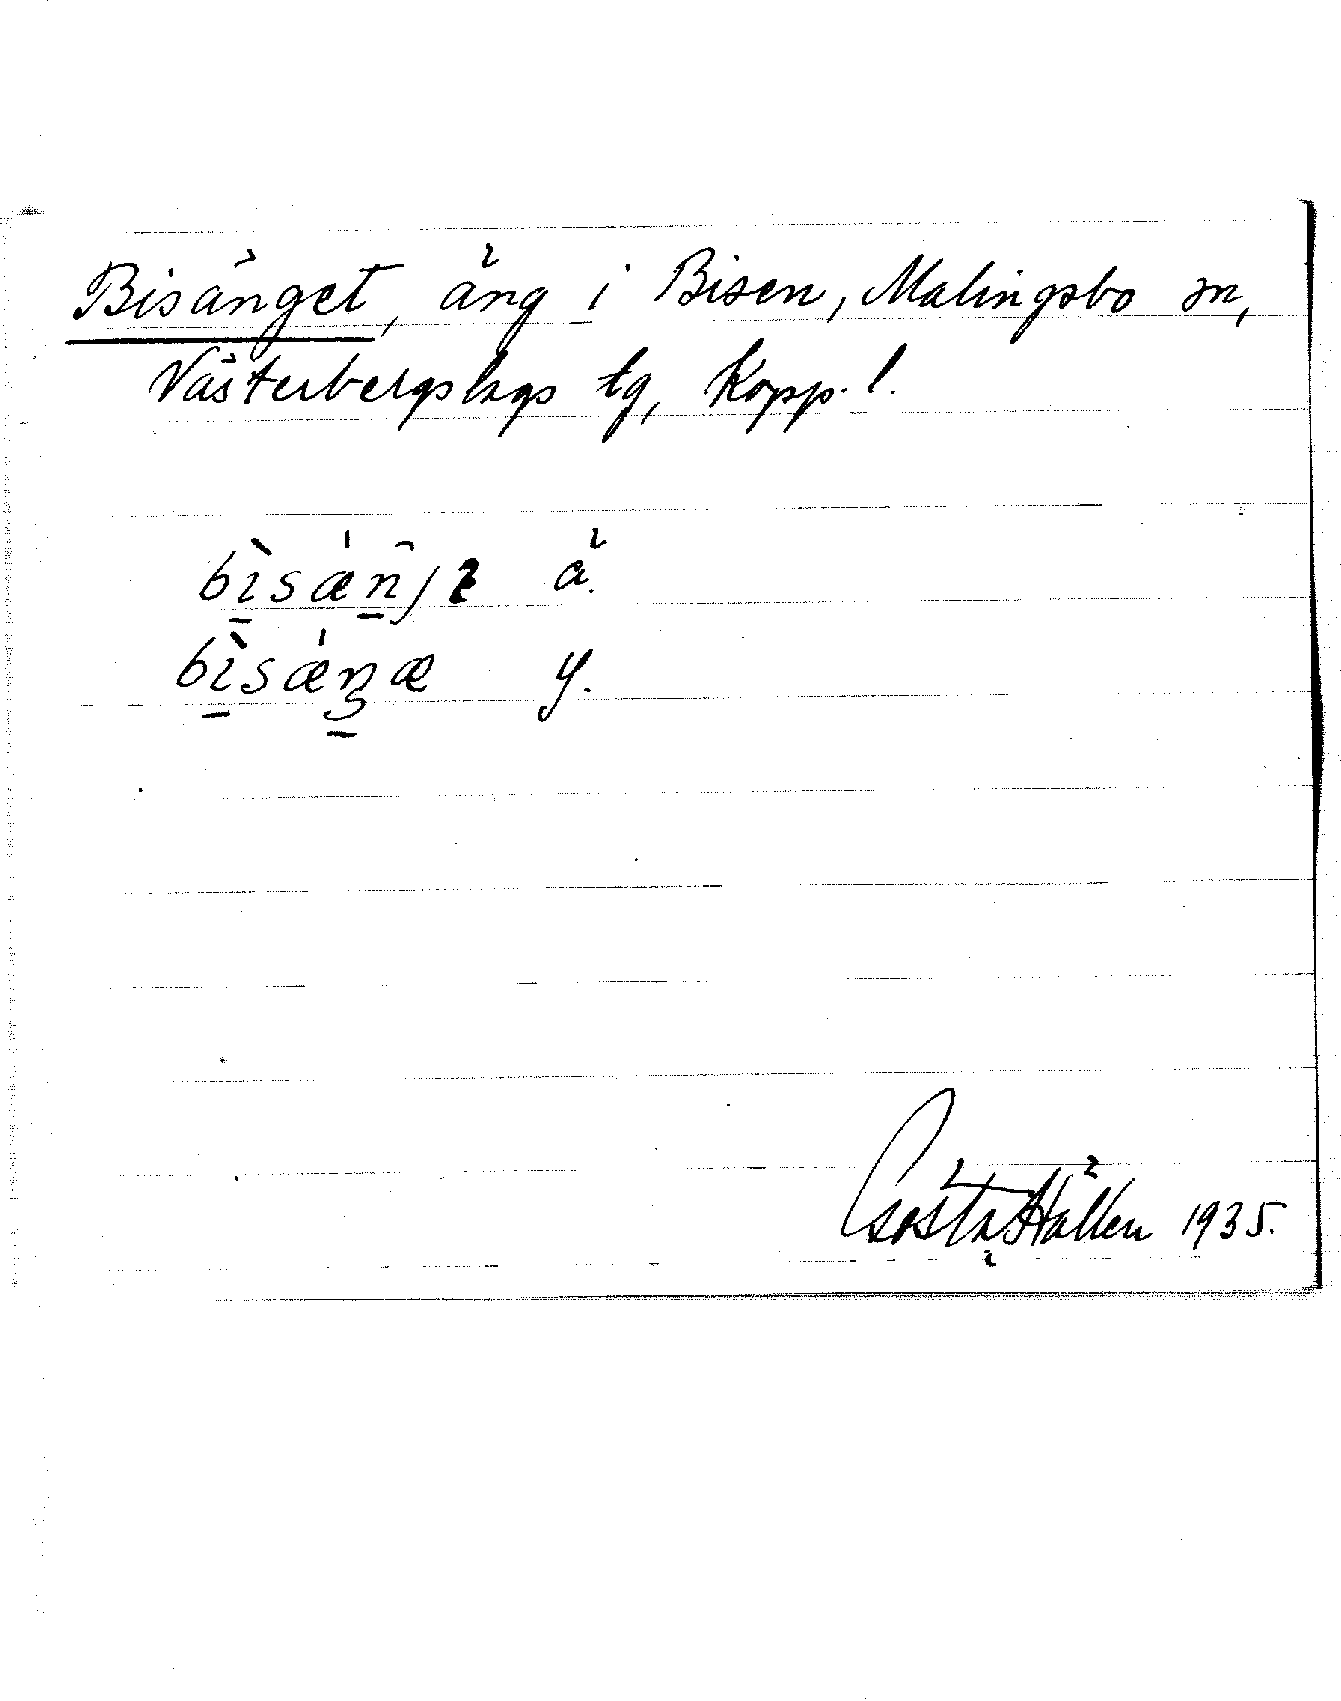 Bisänget, äng i Bisen, Malingsbo sn,
Västerbergslags tg, Kopp. l.
ä.
y.
Gösta Hällen 1935.